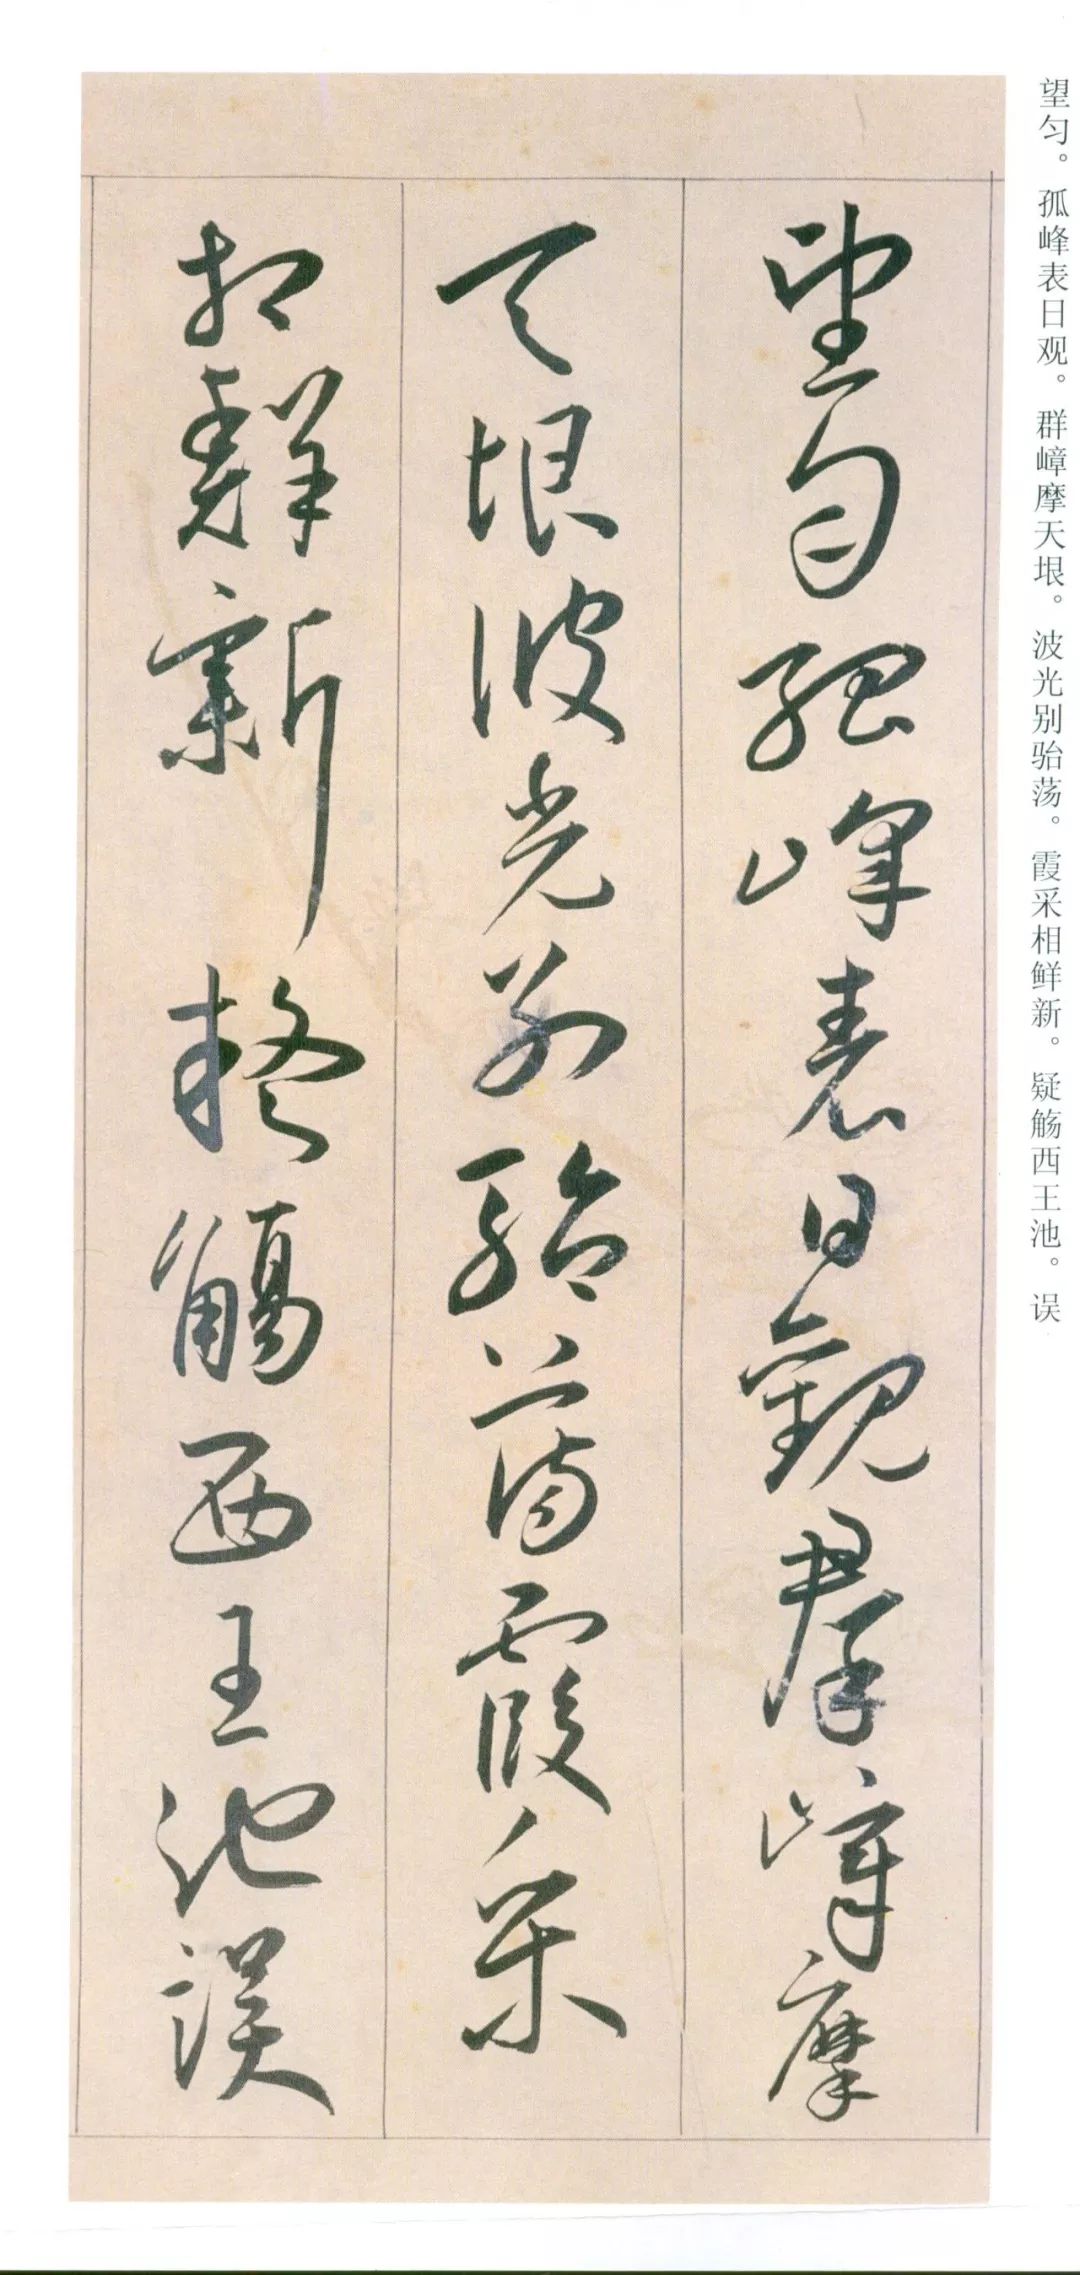 望匀。孤峰表日观。群嶂摩天垠。波光别骀荡。霞采相鲜新。疑觞西王池。误
望匀孤峰表日觀群嶂摩
天垠波光别駘蕩霞采
相鮮新疑觴西王池誤